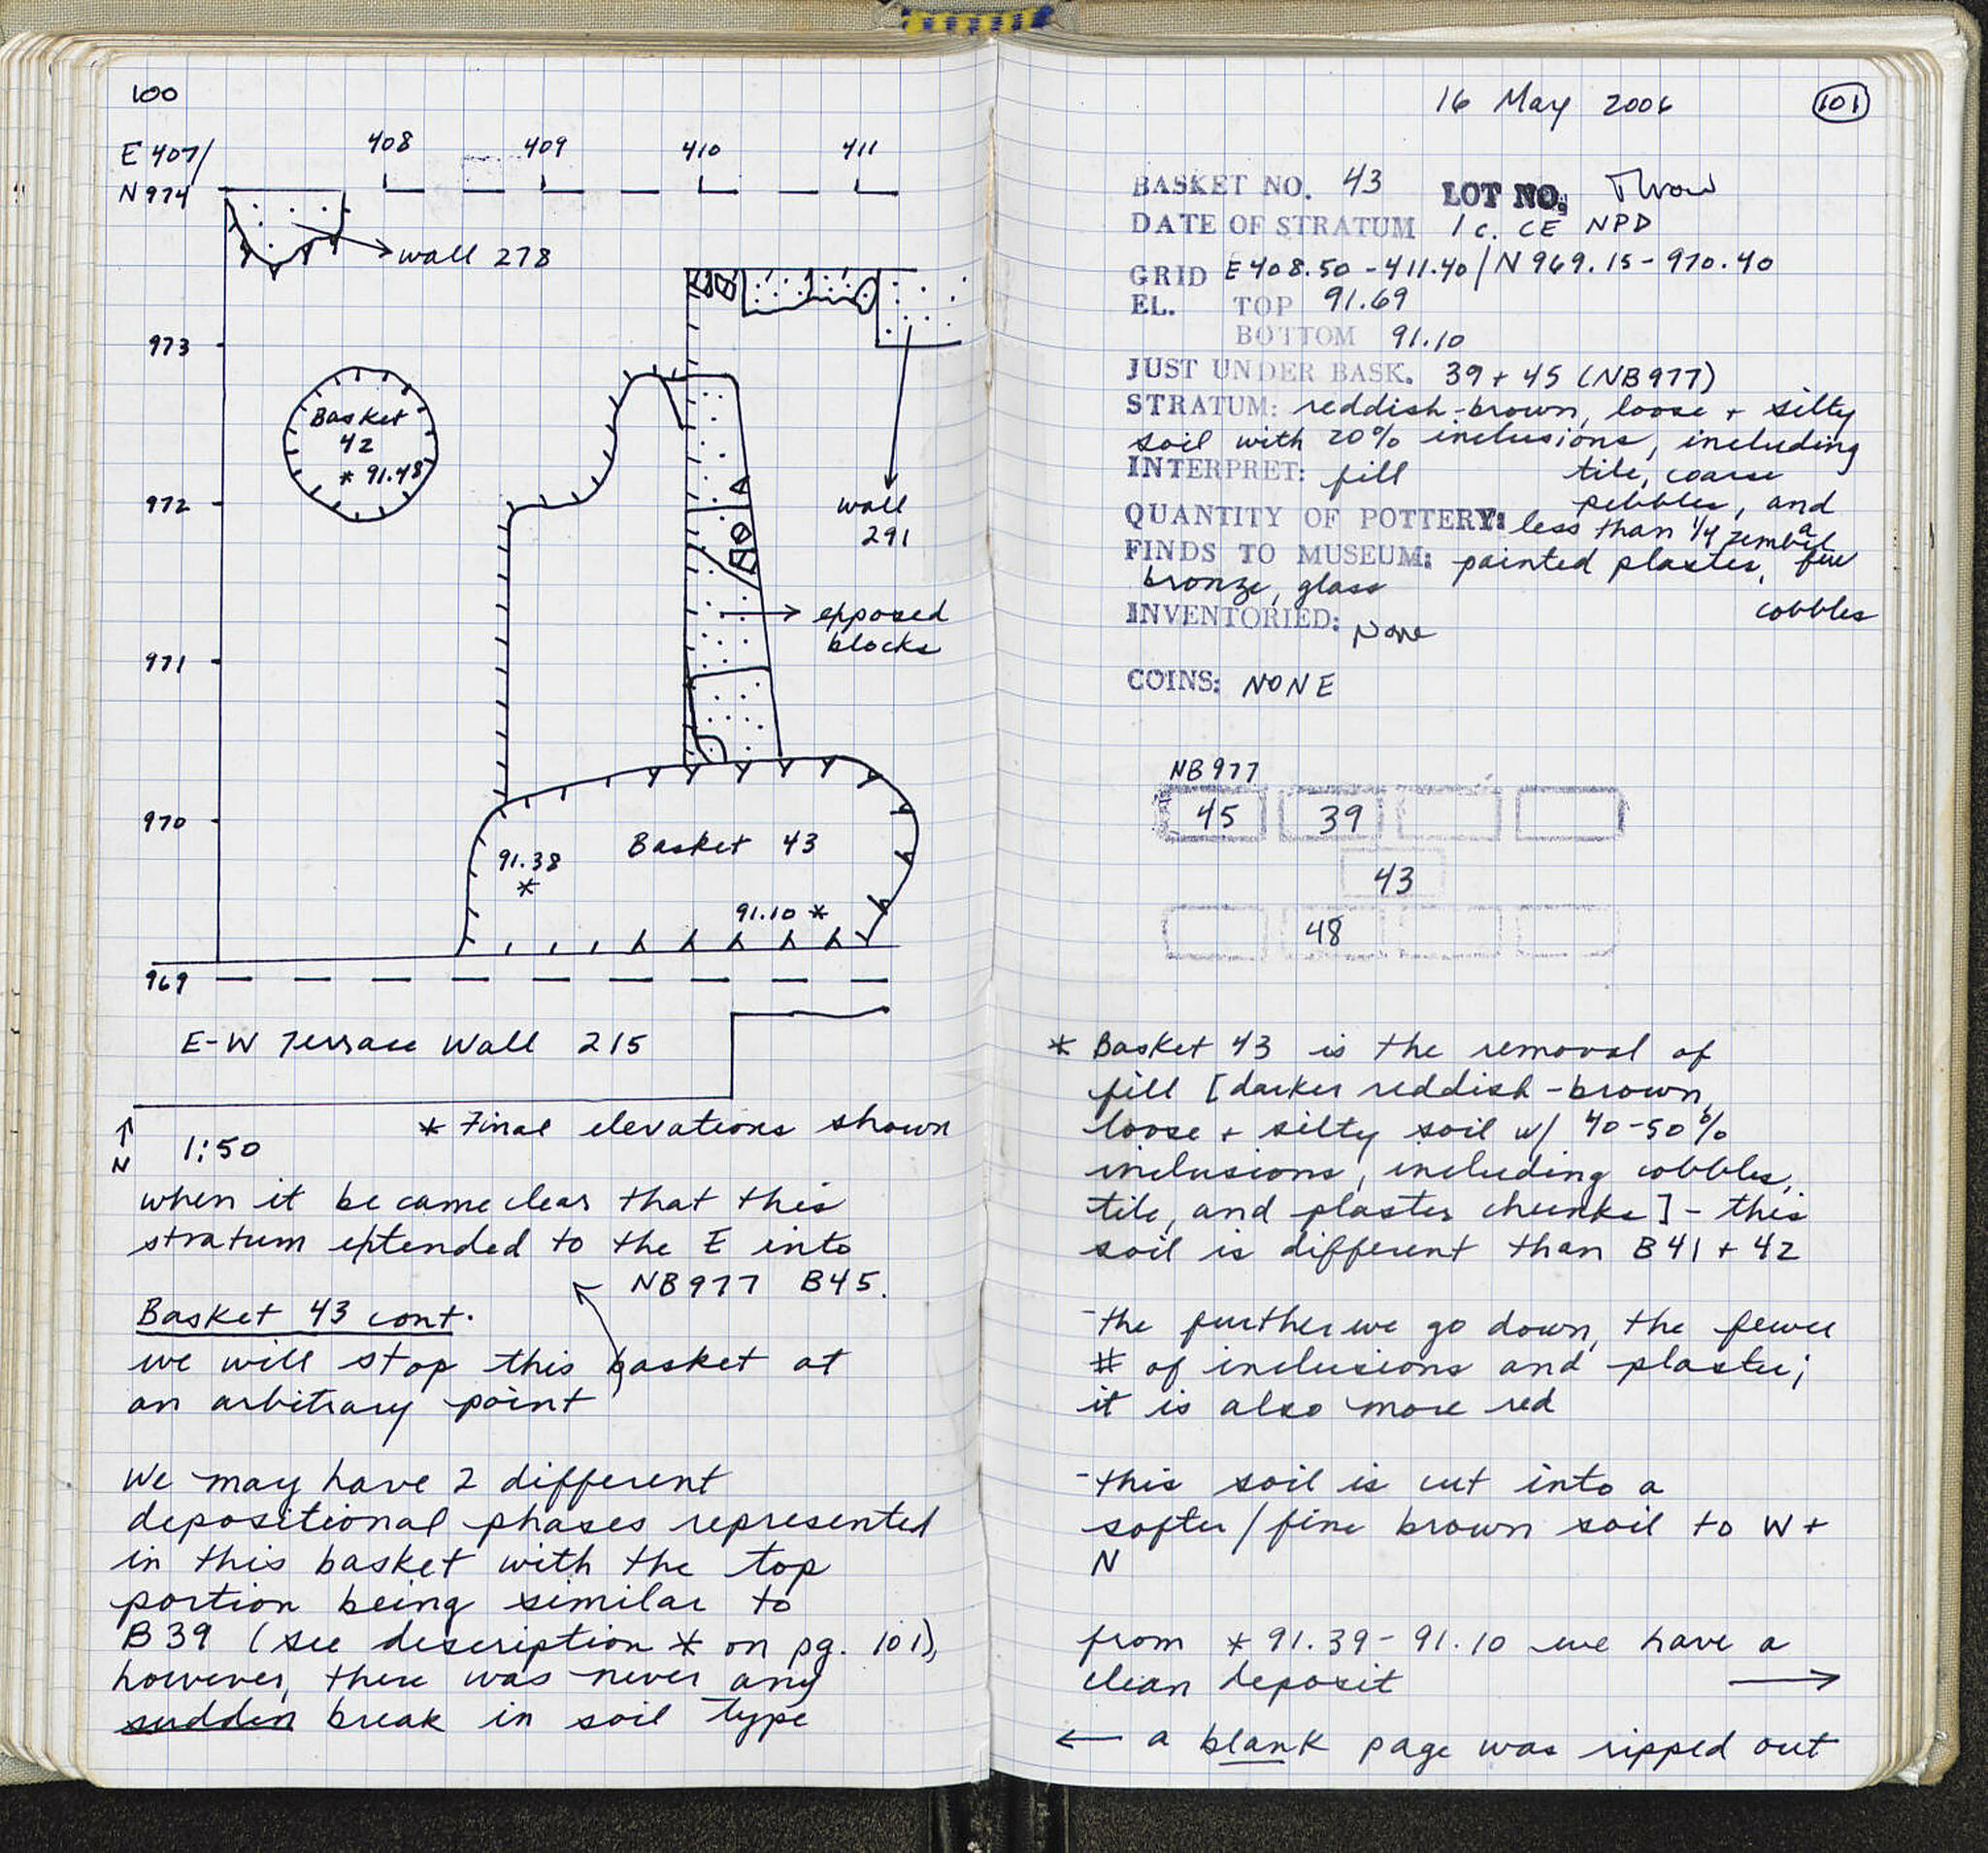 100
E 407/
N 974
408
409
410
411
wall 278
973
Basket
42
* 91.48
972
wall
291
epposed
blocks
971
970
Basket 43
91.38
*
91.10 *
969
E-W Terrace Wall 215
* Final elevations shown
↑
N
1:50
when it became clear that this
stratum extended to the E into
← NB977 B45.
Basket 43 cont.
we will stop this basket at
an arbitrary point
We may have 2 different
depositional phases represented
in this basket with the top
portion being similar to
B39 (see description * on pg. 101),
however, there was never any
sudden break in soil type
16 May 2006
101
BASKET NO. 43 LOT NO. Throw
DATE OF STRATUM 1 c. CE NPD
GRID E 408.50 - 411.40 / N 969.15 - 970.40
EL. TOP 91.69
BOTTOM 91.10
JUST UNDER BASK. 39 + 45 (NB977)
STRATUM: reddish-brown, loose + silty
soil with 20% inclusions, including
tile, coarse
pebbles, and
a
few
cobbles
INTERPRET: fill
QUANTITY OF POTTERY: less than 1/4 zembil
FINDS TO MUSEUM: painted plaster,
bronze, glass
INVENTORIED: None
COINS: NONE
NB977
45 39
43
48
* Basket 43 is the removal of
fill [darker reddish-brown,
loose + silty soil w/ 40-50%
inclusions, including cobbles,
tile, and plaster chunks] - this
soil is different than B41 + 42
- the further we go down, the fewer
# of inclusions and plaster;
it is also more red
- this soil is cut into a
softer/fine brown soil to W +
N
from * 91.39 - 91.10 we have a
clean deposit →
← a blank page was ripped out